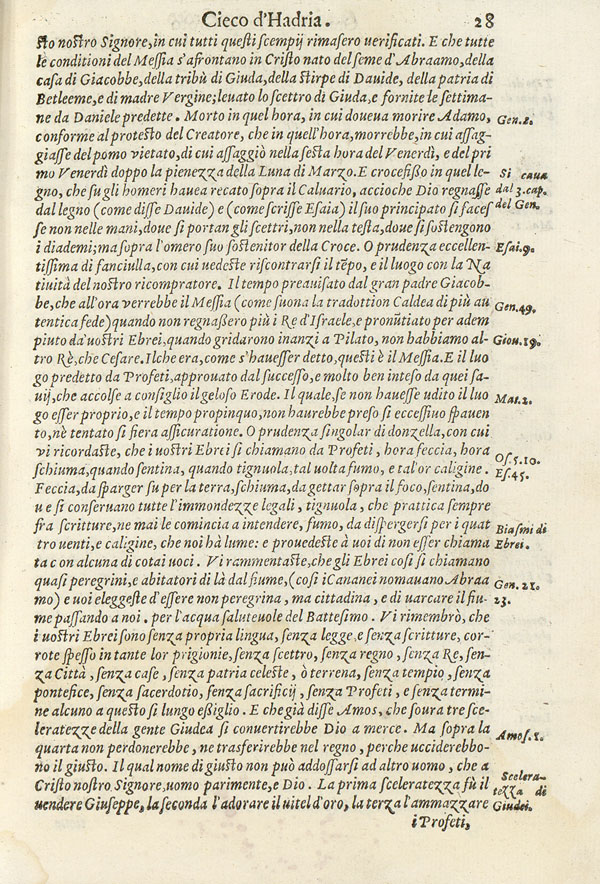 Cieco d'Hadria. 28
sto nostro Signore, in cui tutti questi scempij rimasero uerificati. E che tutte
le conditioni del Messia s'affrontano in Cristo nato del seme d'Abraamo, della
casa di Giacobbe, della tribù di Giuda, della stirpe di Dauide, della patria di
Betleeme, e di madre Vergine; leuato lo scettro di Giuda, e fornite le settima-
ne da Daniele predette. Morto in quel hora, in cui doueua morire Adamo,
Gen. 2.
conforme al protesto del Creatore, che in quell'hora, morrebbe, in cui assag-
giasse del pomo vietato, di cui assaggiò nella sesta hora del Venerdì, e del pri
mo Venerdì doppo la pienezza della Luna di Marzo. E crocefisso in quel le-
Si caua
gno, che su gli homeri hauea recato sopra il Caluario, accioche Dio regnasse
dal 3. cap.
dal legno (come disse Dauide) e (come scrisse Esaia) il suo principato si faces
del Gen.
se non nelle mani, doue si portan gli scettri, non nella testa, doue si sostengono
i diademi; ma sopra l'omero suo sostenitor della Croce. O prudenza eccellen-
Esai. 9.
tissima di fanciulla, con cui uedeste riscontrarsi il tēpo, e il luogo con la Na
tiuità del nostro ricompratore. Il tempo preauisato dal gran padre Giacob-
be, che all'ora verrebbe il Messia (come suona la tradottion Caldea di più au
Gen. 49.
tentica fede) quando non regnassero più i Re d'Israele, e pronūtiato per adem
piuto da'uostri Ebrei, quando gridarono inanzi a Pilato, non habbiamo al-
Giou. 19.
tro Rè, che Cesare. Ilche era, come s'hauesser detto, questi è il Messia. E il luo
go predetto da Profeti, approuato dal successo, e molto ben inteso da quei sa-
uij, che accolse a consiglio il geloso Erode. Il quale, se non hauesse udito il luo
Mat. 2.
go esser proprio, e il tempo propinquo, non haurebbe preso si eccessiuo spauen
to, nè tentato si fiera assicuratione. O prudenza singolar di donzella, con cui
vi ricordaste, che i uostri Ebrei si chiamano da Profeti, hora feccia, hora
Os. 5. 10.
schiuma, quando sentina, quando tignuola, tal uolta fumo, e tal'or caligine.
Es. 45.
Feccia, da sparger su per la terra, schiuma, da gettar sopra il foco, sentina, do
u e si conseruano tutte l'immondezze legali, tignuola, che prattica sempre
fra scritture, ne mai le comincia a intendere, fumo, da dispergersi per i quat
Biasmi di
tro uenti, e caligine, che noi hà lume: e prouedeste à uoi di non esser chiama
Ebrei.
ta con alcuna di cotai uoci. Vi rammentaste, che gli Ebrei così si chiamano
quasi peregrini, e abitatori di là dal fiume, (così i Cananei nomauano Abraa
Gen. 21.
mo) e uoi eleggeste d'essere non peregrina, ma cittadina, e di uarcare il fiu-
23.
me passando a noi. per l'acqua saluteuole del Battesimo. Vi rimembrò, che
i uostri Ebrei sono senza propria lingua, senza legge, e senza scritture, cor-
rote spesso in tante lor prigionie, senza scettro, senza regno, senza Re, sen-
za Città, senza case, senza patria celeste, ò terrena, senza tempio, senza
pontefice, senza sacerdotio, senza sacrificij, senza Profeti, e senza termine
alcuno a questo sì lungo essiglio. E che già disse Amos, che soura tre sce-
leratezze della gente Giudea si conuertirebbe Dio a merce. Ma sopra la
Amos. 2.
quarta non perdonerebbe, ne trasferirebbe nel regno, perche ucciderebbo-
no il giusto. Il qual nome di giusto non può addossarsi ad altro uomo, che a
Scelera-
Cristo nostro Signore, uomo parimente, e Dio. La prima sceleratezza fù il
tezza di
uendere Giuseppe, la seconda l'adorare il uitel d'oro, la terza l'ammazzare
Giudei.
i Profeti,